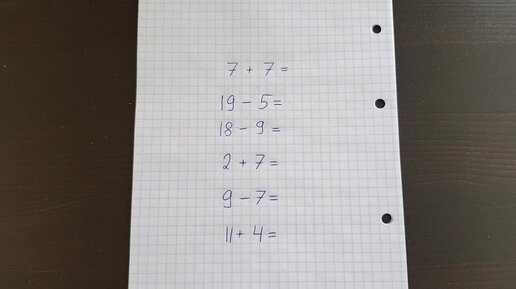 7 + 7 =
19 - 5 =
18 - 9 =
2 + 7 =
9 - 7 =
11 + 4 =